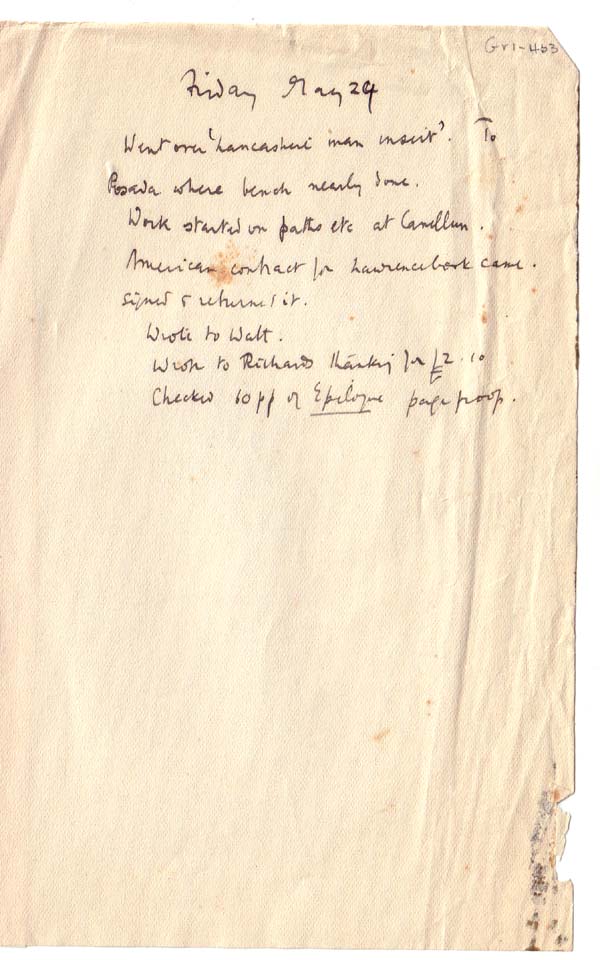 Gr1-463
Friday May 24
Went over 'Lancashire man insert'. To
Posada where bench nearly done.
Work started on paths etc at Canellun.
American contract for Lawrence book came.
Signed & returned it.
Wrote to Watt.
Wrote to Richards thanking for £2.10
Checked 60 pp of Epilogue page proof.